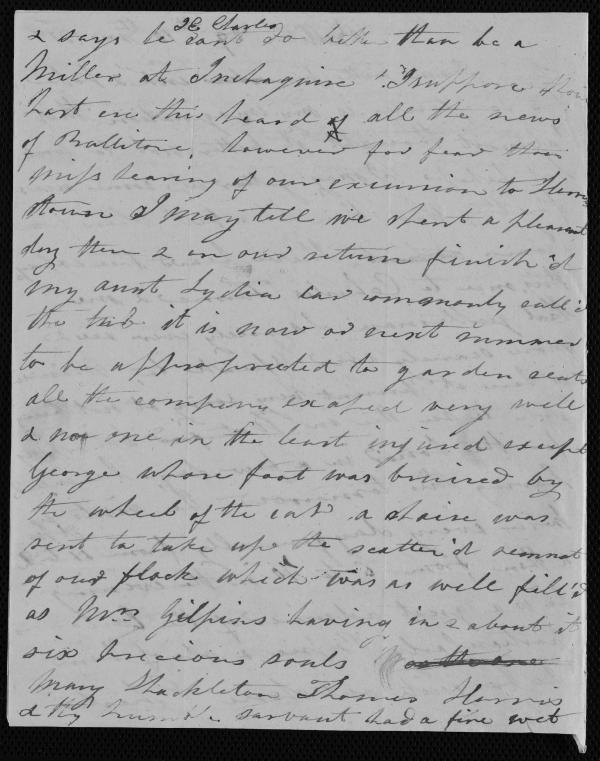 JC Charles
& says he cant do better than be a
Miller at Inchaquire. I suppose thou
hast ere this heard of all the news
of Ballitore, however for fear thou
miss hearing of our excursion to Harris
town I may tell we spent a pleasant
day there & on our return finish'd
my aunt Lydia car commonly call'd
the tub it is now or next summer
to be appropriated to garden seats
all the company escaped very well
& no one in the least injured except
George whose foot was bruised by
the wheel of the car a chaise was
sent to take up the scatter'd remnant
of our flock which was as well fill'd
as Mrs Gilpins having in & about it
six precious souls
Mary Shackleton Thomas Harris
& thy humble servant had a fine wet